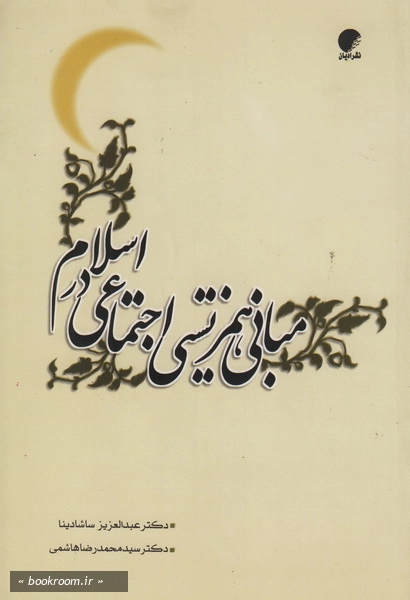 نشر ادیان
مبانی همزیستی اجتماعی در اسلام
دکتر عبدالعزیز ساشادینا
دکتر سید محمدرضا هاشمی
« bookroom.ir »